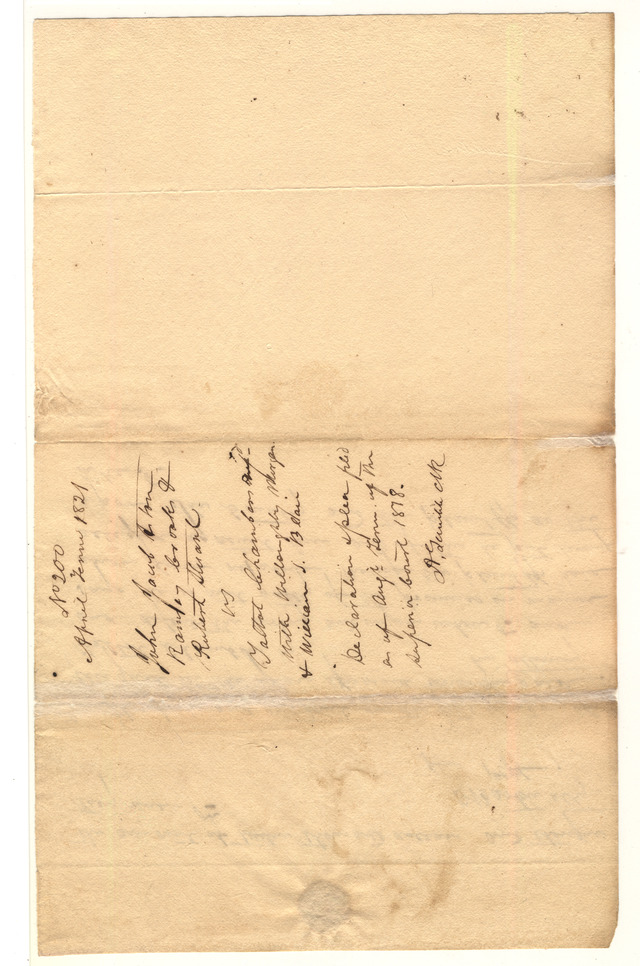 No 200
April Term 1821
John Jacob
Ramsey Crooks &
Robert Stuart
vs
Talbot Chambers
with Willoughby Morgan
& William S. Blair
Declaration & plea filed
as of Aug: Term of the
superior court 1818.
A, Gamble Clk